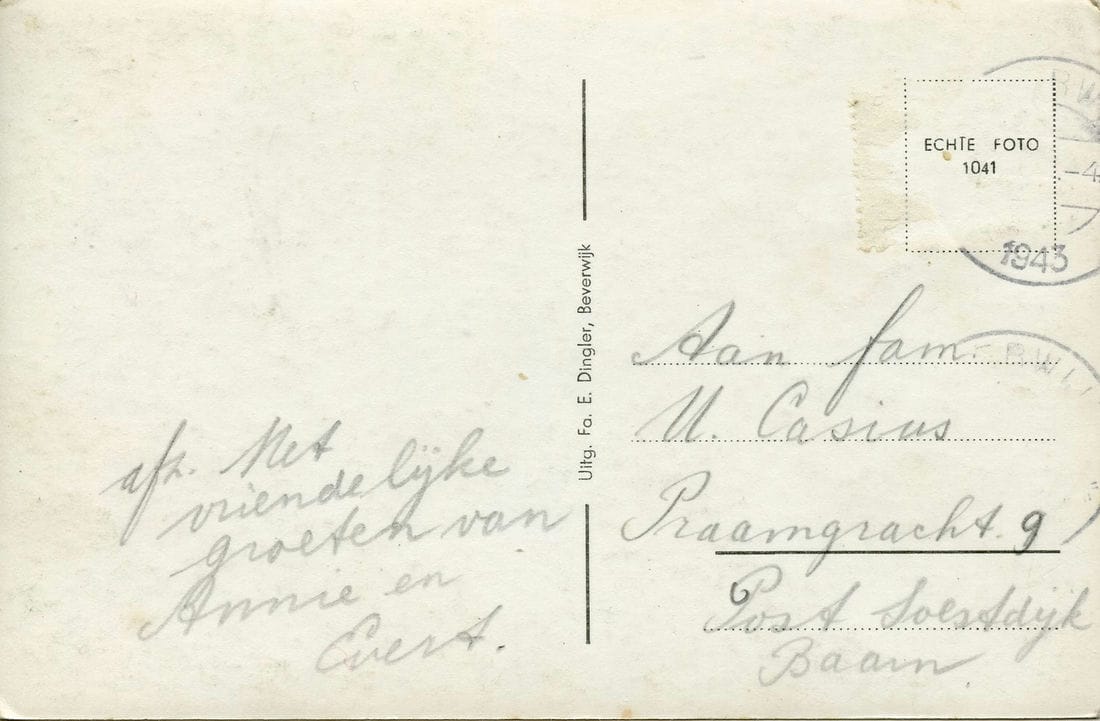 afz. Met
vriendelijke
groeten van
Annie en
Evert.
Uitg. Fa. E. Dingler, Beverwijk
ECHTE FOTO
1041
1943
Aan fam.
U. Casius
Praamgracht. 9
Post Soestdijk
Baarn.